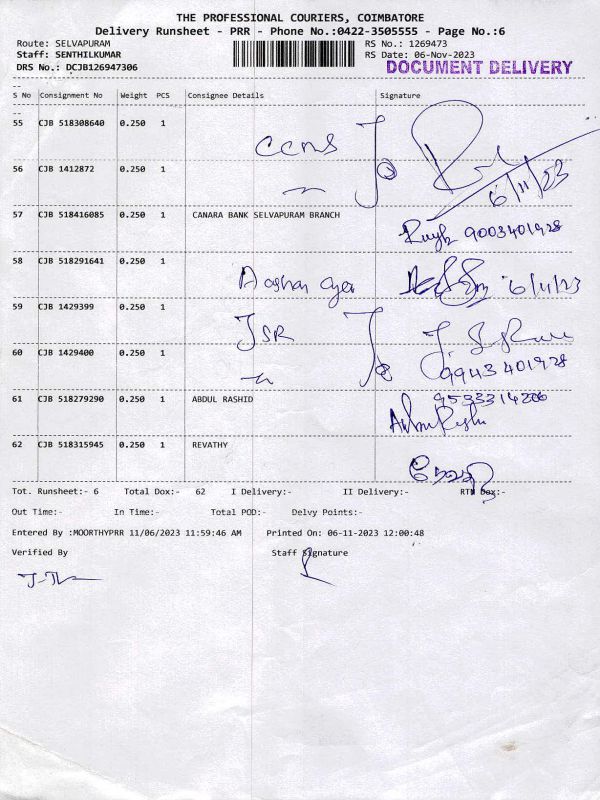 THE PROFESSIONAL COURIERS, COIMBATORE
Delivery Runsheet - PRR - Phone No.:0422-3505555 - Page No.:6
Route: SELVAPURAM RS No.: 1269473
Staff: SENTHILKUMAR RS Date: 06-Nov-2023
DRS No.: DCJB126947306 DOCUMENT DELIVERY
S No Consignment No Weight PCS Consignee Details Signature
55 CJB 518308640 0.250 1 CCMS
56 CJB 1412872 0.250 1 6/11/23
57 CJB 518416085 0.250 1 CANARA BANK SELVAPURAM BRANCH
9003401928
58 CJB 518291641 0.250 1
6/11/23
59 CJB 1429399 0.250 1 JSR
60 CJB 1429400 0.250 1 9943401928
61 CJB 518279290 0.250 1 ABDUL RASHID
62 CJB 518315945 0.250 1 REVATHY
Tot. Runsheet:- 6 Total Dox:- 62 I Delivery:- II Delivery:- RTN Dox:-
Out Time:- In Time:- Total POD:- Delvy Points:-
Entered By :MOORTHYPRR 11/06/2023 11:59:46 AM Printed On: 06-11-2023 12:00:48
Verified By Staff Signature